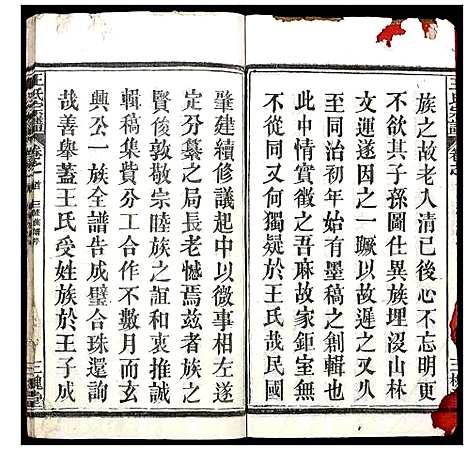 族之故老入清已後心不忘明更
不欲其子孫圖仕異族埋沒山林
或其次之一蹶以故遲之又久
至同治初年始有墨稿之創輯也
此中情實徵之吾麻故家鉅室無
大不同又何獨疑於王氏哉民國
肇建續修議起中以微事相左遂
定分纂之局長老憾焉茲者族之
賢俊敦敬宗睦族之誼和衷推誠
輯稿集貲分工合作不數月而玄
興公一族全譜告成璧合珠還詢
哉善舉蓋王氏受姓族於王子成
王氏宗譜
卷之
三槐堂